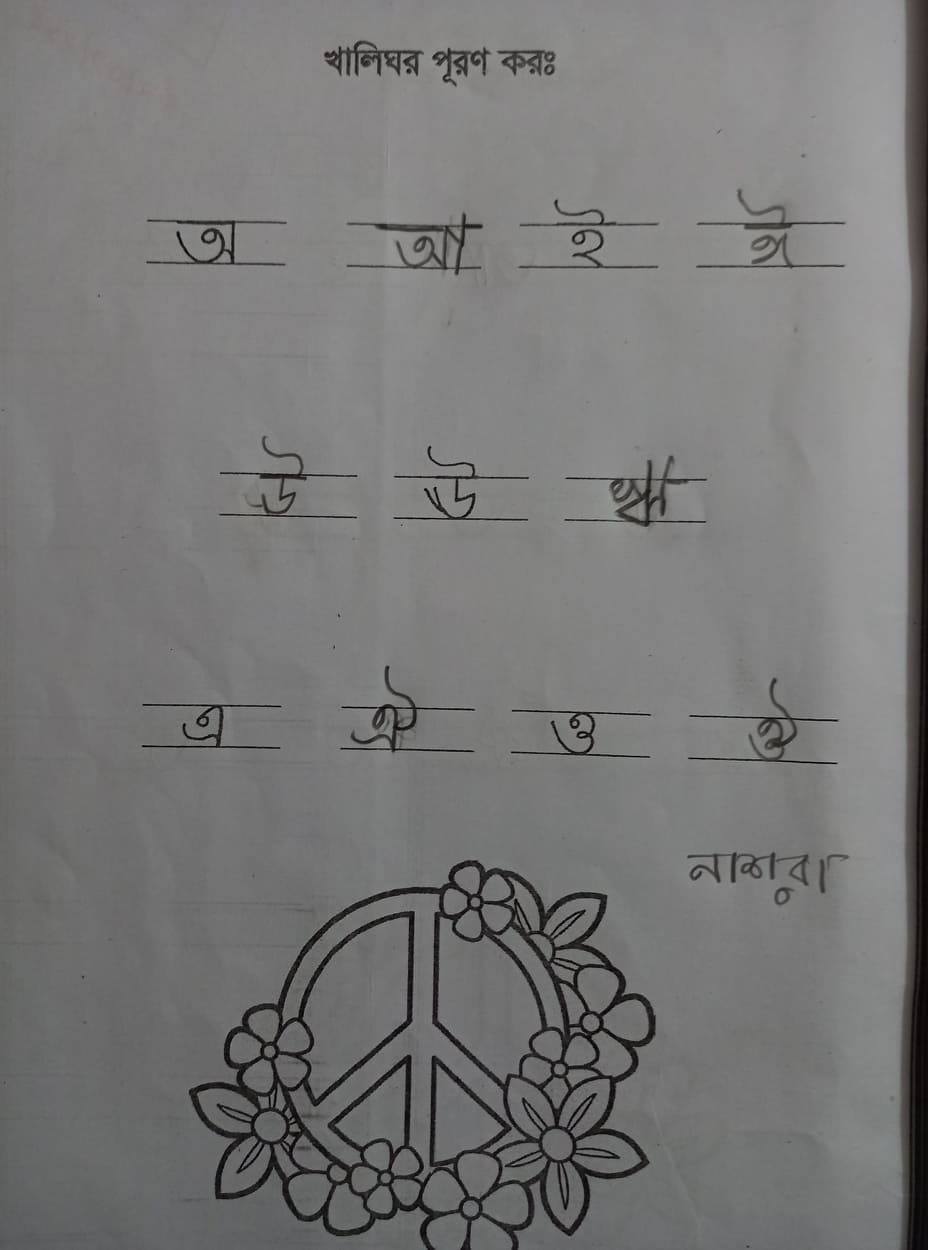 খালিঘর পূরণ করঃ
অ আ ই ঈ
উ ঊ ঋ
এ ঐ ও ঔ
নাশরা